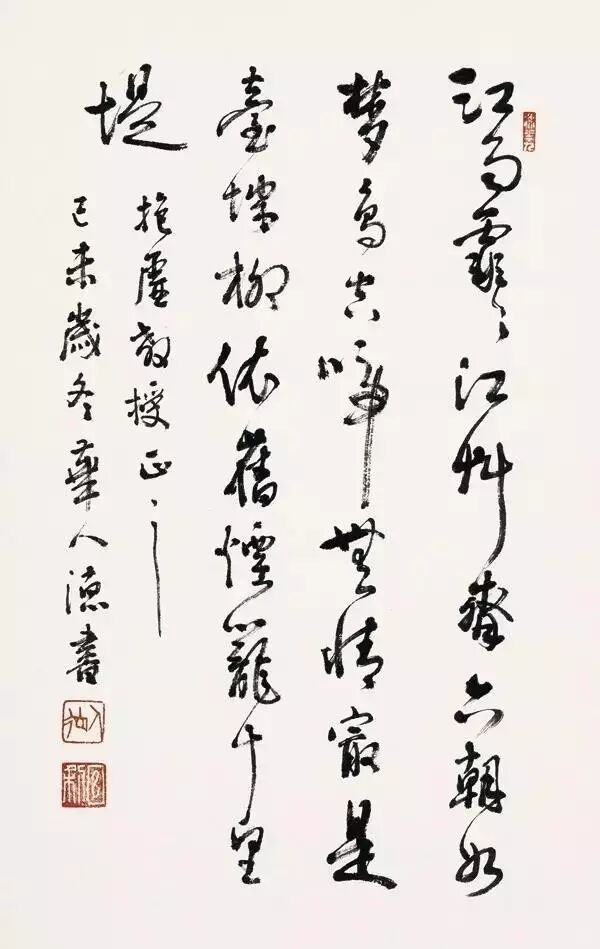 江雨霏々江艸齊六朝如
夢鳥空啼無情最是
臺城柳依舊煙籠十里
堤
抱虛教授正之
己未歲冬華人德書